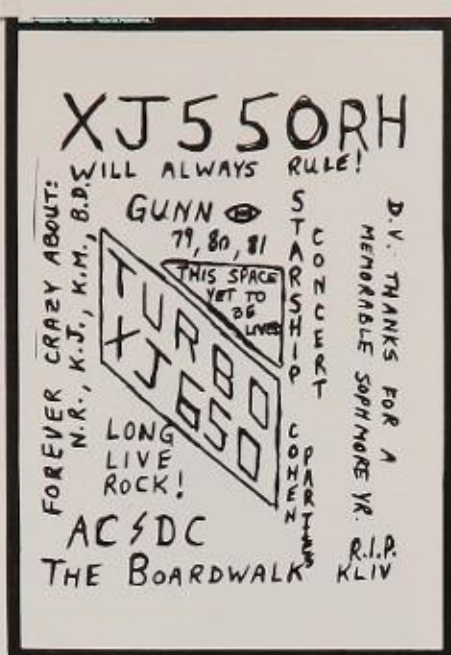 XJ550RH
WILL ALWAYS RULE!
FOREVER CRAZY ABOUT:
N.R., K.J., K.M., B.D.
GUNN
79, 80, 81
THIS SPACE
YET TO
BE
LIVED
TURBO
XJ650
STARSHIP
CONCERT
D.V. THANKS FOR A
MEMORABLE SOPHMORE YR.
LONG
LIVE
ROCK!
COHEN
PARTIES
AC⚡DC
THE BOARDWALK
R.I.P.
KLIV